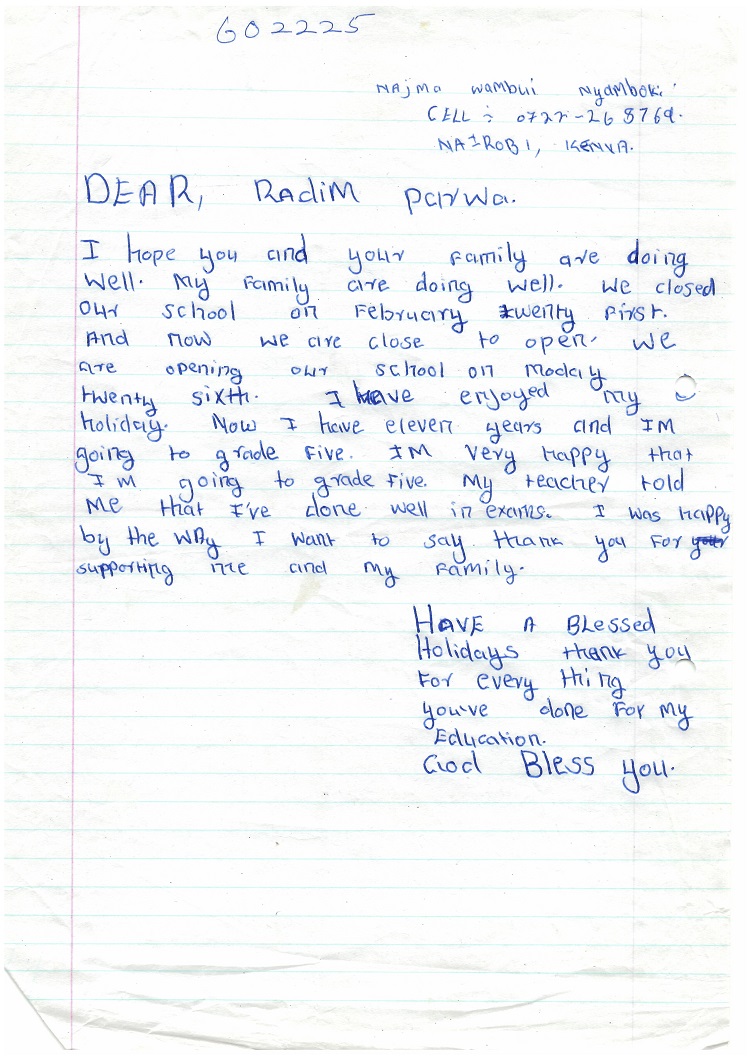 602225
NAjma wambui Nyamboki
CELL : 0722-268769.
NAIROBI, KENYA.
DEAR, RADiM Parwa.
I hope you and your family are doing
well. My family are doing well. we closed
our school on February twenty first.
And now we are close to open. we
are opening our school on moday
twenty sixth. I have enjoyed my
holiday. Now I have eleven years and IM
going to grade five. IM very happy that
IM going to grade five. My teacher told
me that I've done well in exams. I was happy
by the way I want to say thank you for your
supporting me and my family.
HAVE A BLessed
Holidays thank you
for every thing
you've done for my
Education.
God Bless you.